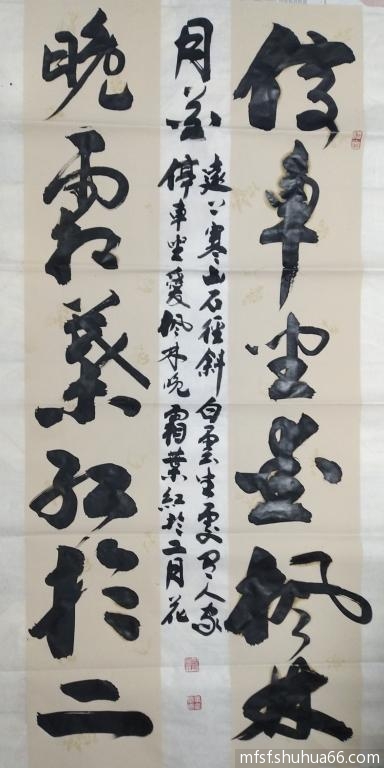 停車坐愛枫林
晚霜葉紅於二
月花
遠上寒山石徑斜白雲生處有人家
停車坐愛枫林晚霜葉紅於二月花
mfsfshuhua66.com